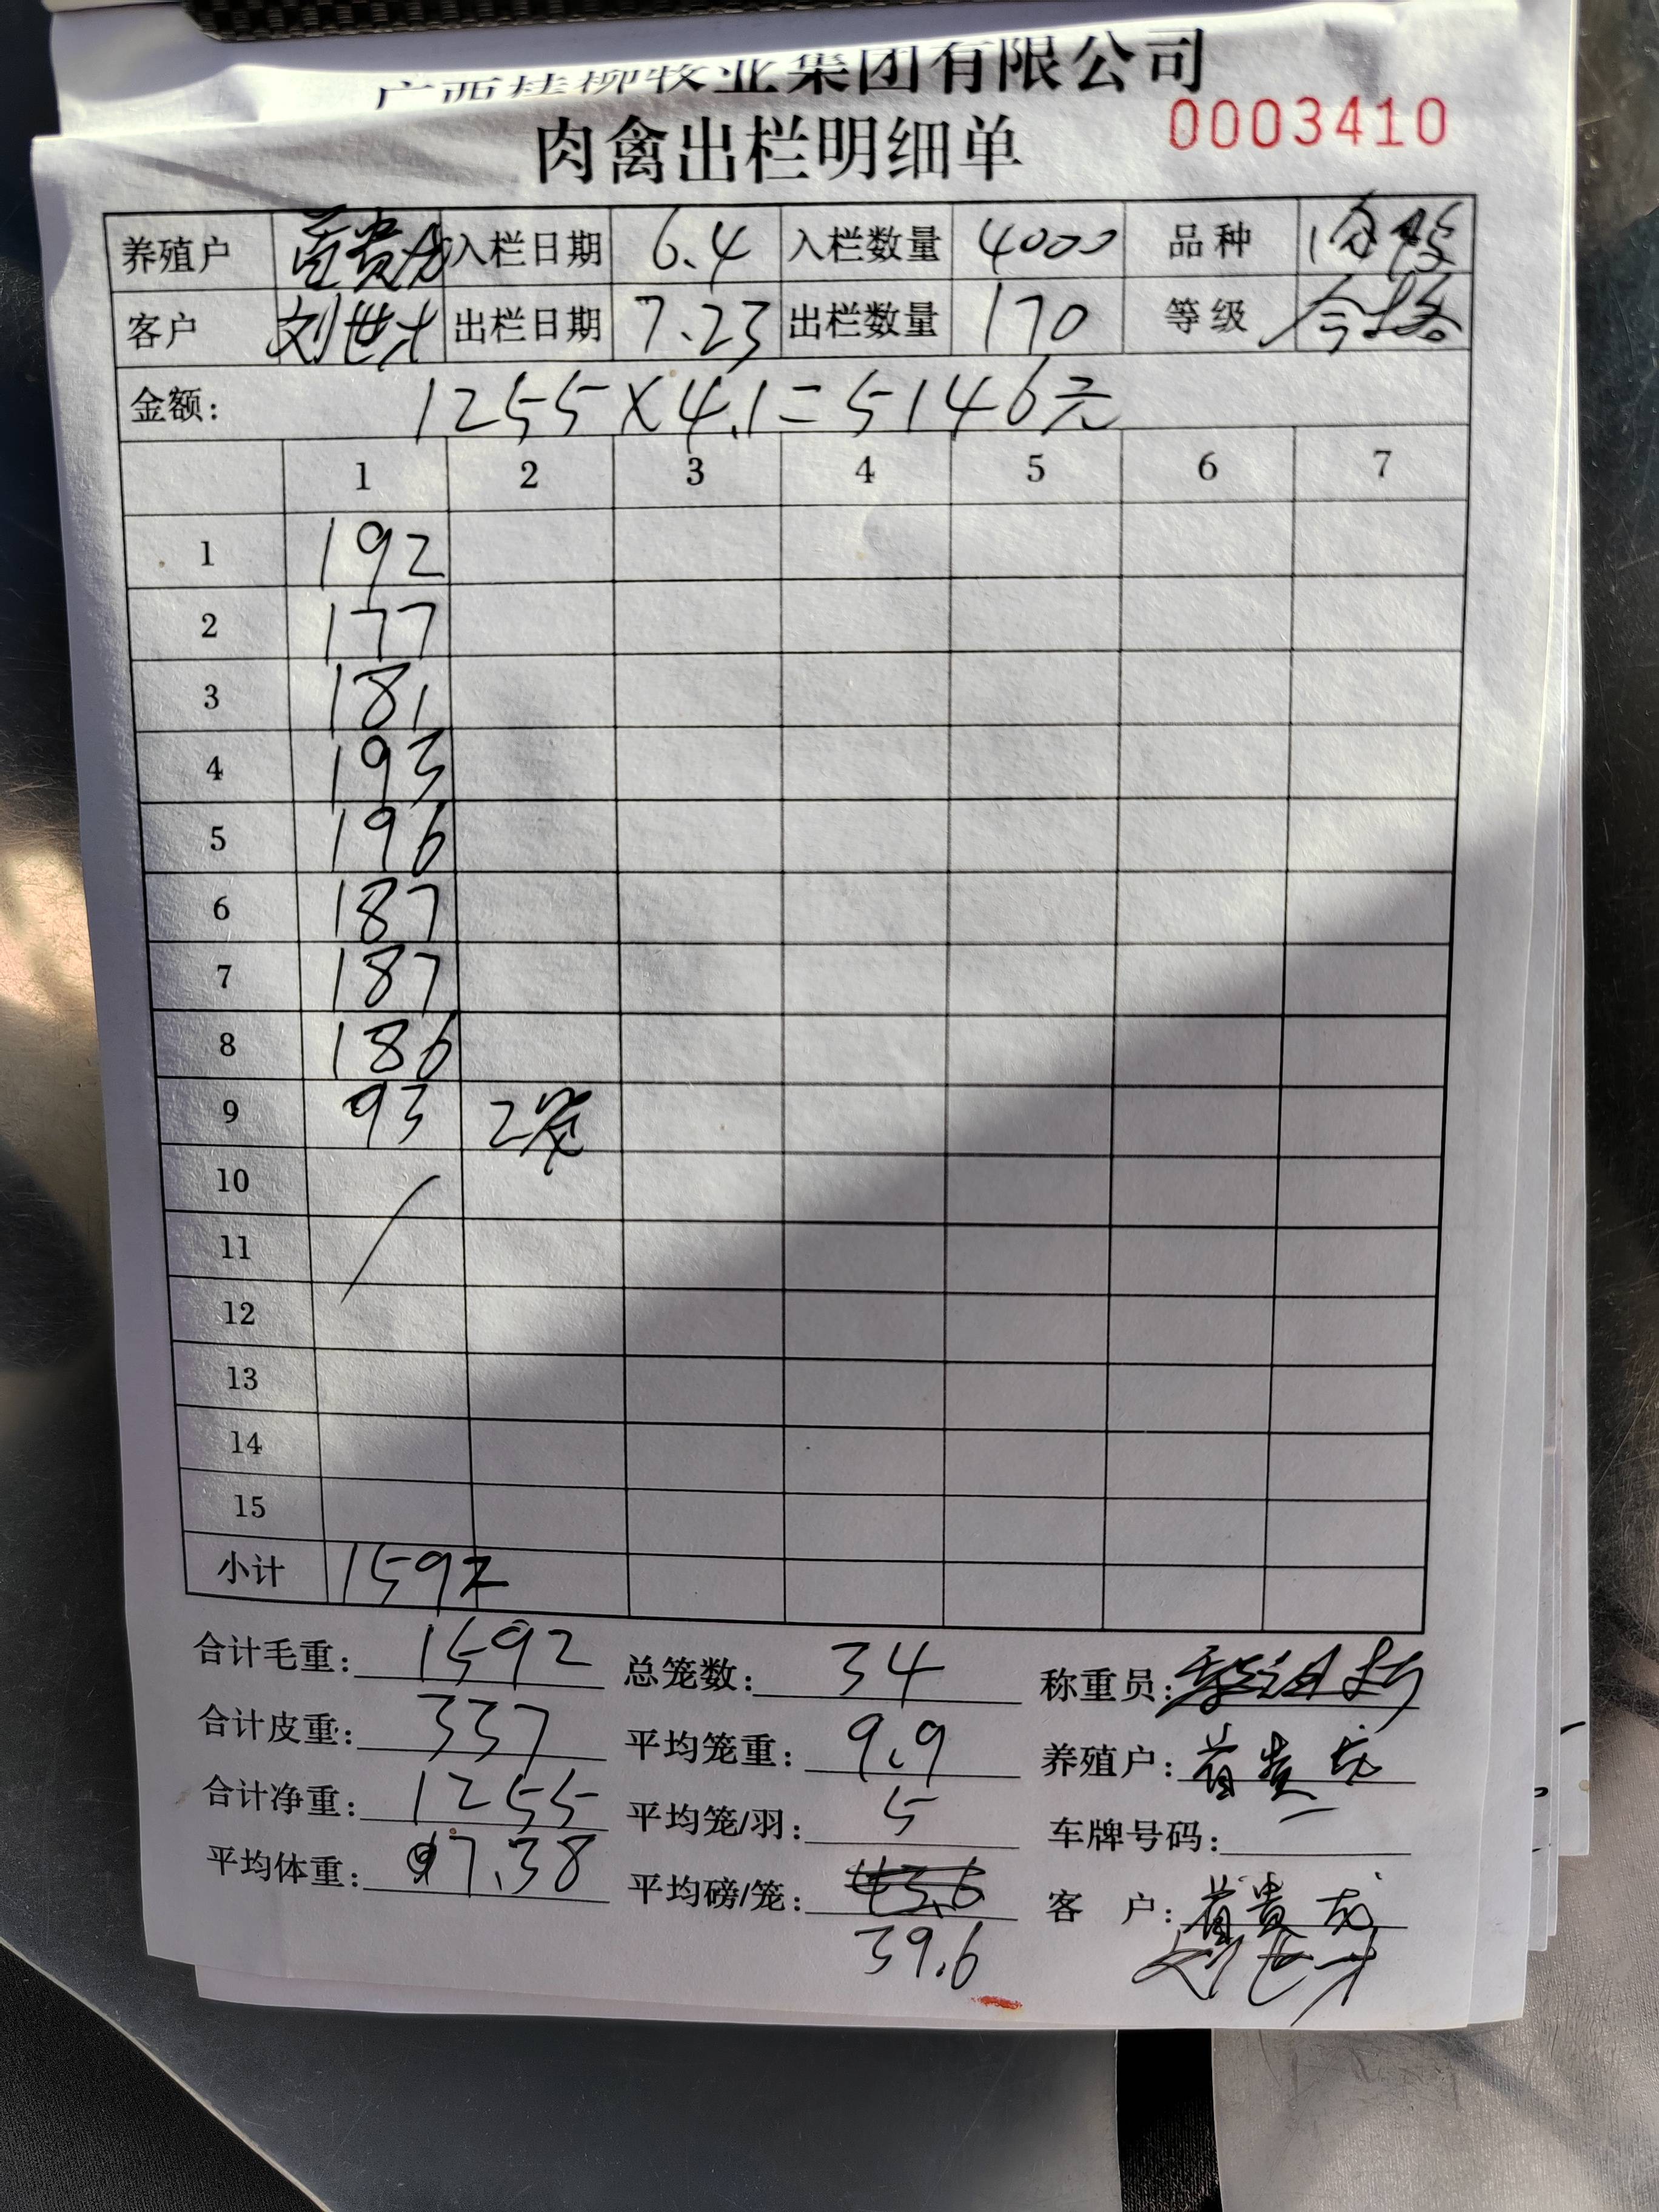 广西桂柳牧业集团有限公司
肉禽出栏明细单 0003410
养殖户 入栏日期 6.4 入栏数量 4000 品种
客户 刘世才 出栏日期 7.23 出栏数量 170 等级 合格
金额: 1255×4.1=5146元
1 2 3 4 5 6 7
1 192
2 177
3 181
4 193
5 196
6 187
7 187
8 186
9 93 2笼
10
11
12
13
14
15
小计 1592
合计毛重: 1592 总笼数: 34 称重员:
合计皮重: 337 平均笼重: 9.9 养殖户:
合计净重: 1255 平均笼/羽: 5 车牌号码:
平均体重: 7.38 平均磅/笼: 43.6 客 户:
39.6 刘世才